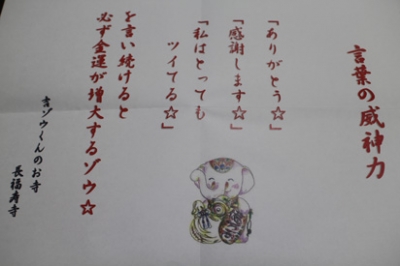 言葉の威神力
「ありがとう☆」
「感謝します☆」
「私はとっても
ツイてる☆」
を言い続けると
必ず金運が増大するゾウ☆
吉ゾウくんのお寺
長福寿寺